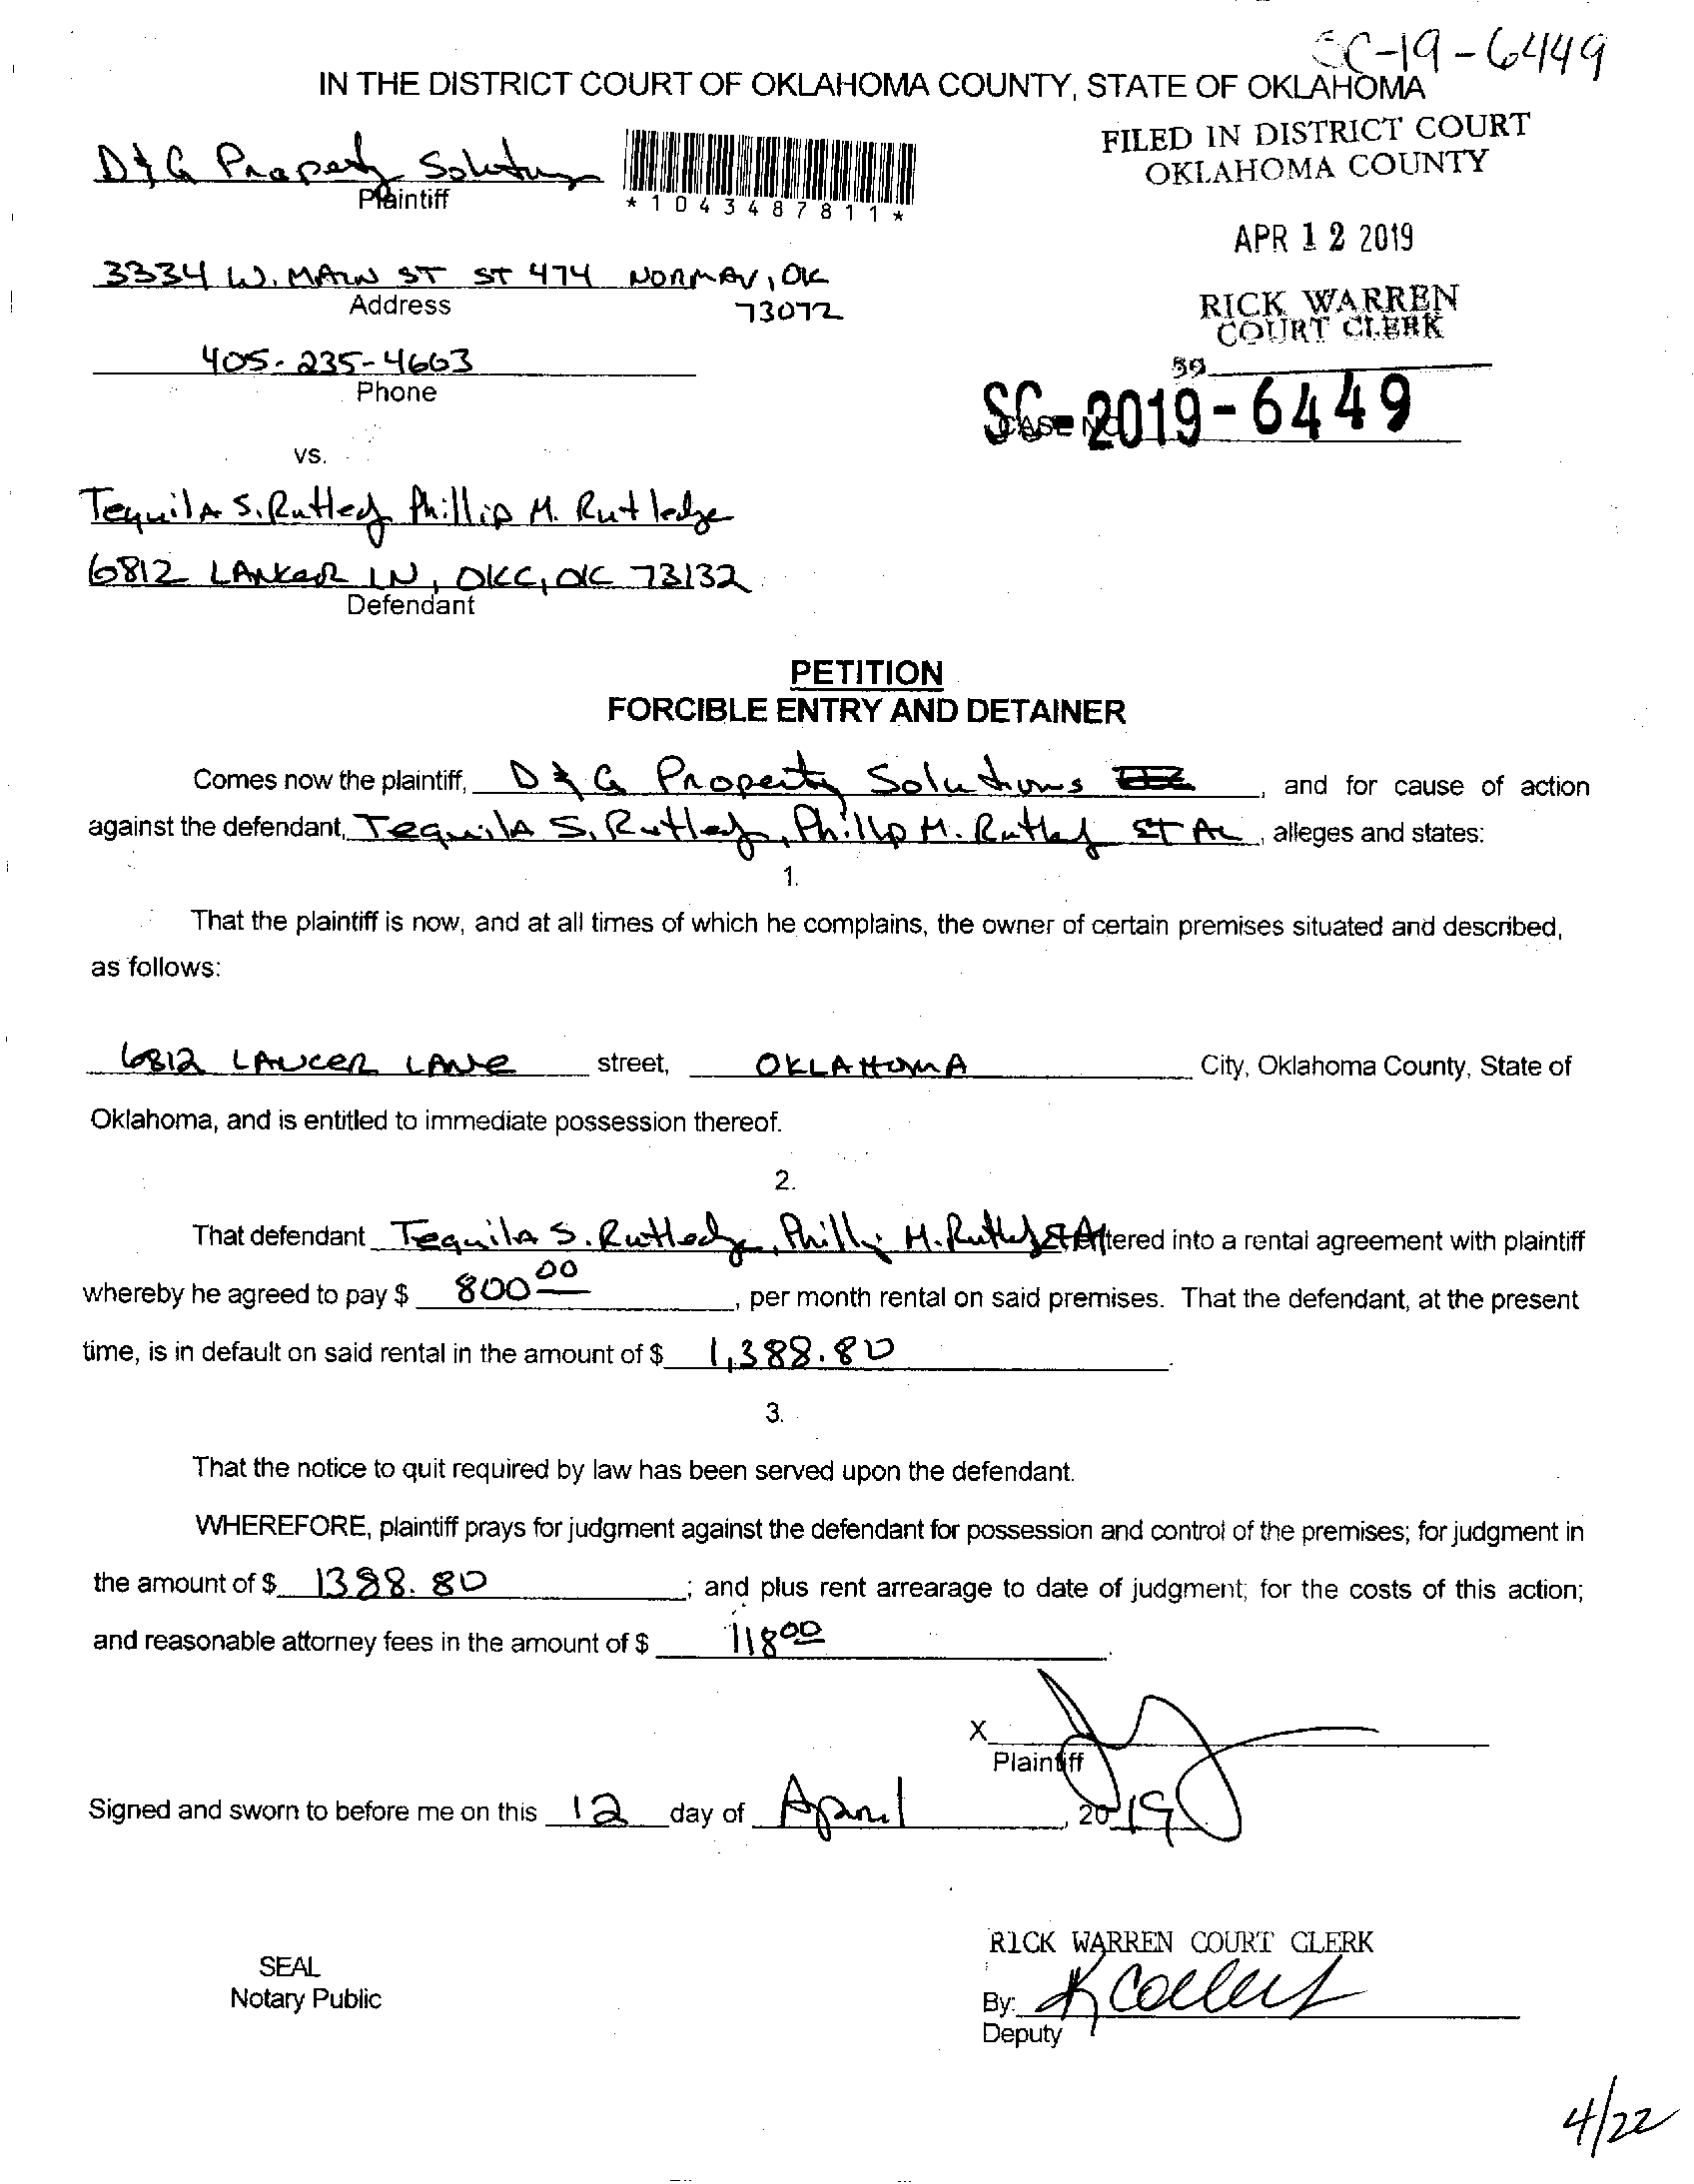 SC-19-6449
IN THE DISTRICT COURT OF OKLAHOMA COUNTY, STATE OF OKLAHOMA
FILED IN DISTRICT COURT
OKLAHOMA COUNTY
D & G Property Solutions
Plaintiff
*1043487811*
APR 12 2019
3334 W. MAIN ST ST 474 NORMAN, OK
Address
73072
RICK WARREN
COURT CLERK
405-235-4663
Phone
39
SC-2019-6449
CASE NO.
vs.
Tequila S. Rutledge Phillip M. Rutledge
6812 LANCER LN, OKC, OK 73132
Defendant
PETITION
FORCIBLE ENTRY AND DETAINER
Comes now the plaintiff, D & G Property Solutions, and for cause of action
against the defendant, Tequila S. Rutledge, Phillip M. Rutledge ET AL, alleges and states:
1.
That the plaintiff is now, and at all times of which he complains, the owner of certain premises situated and described,
as follows:
6812 LANCER LANE street, OKLAHOMA City, Oklahoma County, State of
Oklahoma, and is entitled to immediate possession thereof.
2.
That defendant Tequila S. Rutledge, Phillip M. Rutledge ET AL tered into a rental agreement with plaintiff
whereby he agreed to pay $ 800 00, per month rental on said premises. That the defendant, at the present
time, is in default on said rental in the amount of $ 1,388.80.
3.
That the notice to quit required by law has been served upon the defendant.
WHEREFORE, plaintiff prays for judgment against the defendant for possession and control of the premises; for judgment in
the amount of $ 1388.80; and plus rent arrearage to date of judgment; for the costs of this action;
and reasonable attorney fees in the amount of $ 118 00.
X
Plaintiff
Signed and sworn to before me on this 12 day of April, 2019.
RICK WARREN COURT CLERK
SEAL
Notary Public
By:
Deputy
4/22